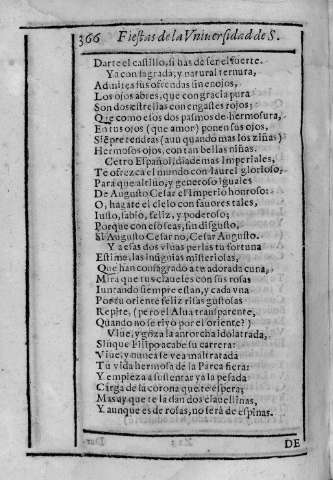 366 Fiestas de la Vniuersidad de S.
Darte el castillo, si has de ser el fuerte.
Ya con sagrada, y natural ternura,
Admites sus ofrendas sin enojos,
Los ojos abres, que con gracia pura
Son dos estrellas con engastes rojos;
Que como e los dos pasmos de hermosura,
En tus ojos (que amor) ponen sus ojos,
Siẽpre tendras (aũ quando mas los ziñas)
Hermosos ojos, con tan bellas niñas.
Cetro Español, diademas Imperiales,
Te ofrezca el mundo con laurel glorioso,
Para que al niño, y generoso iguales
De Augusto Cesar el imperio honroso:
O, hagate el cielo con fauores tales,
Iusto, sabio, feliz, y poderoso;
Porque con eso seas, sin disgusto,
Si Augusto Cesar no, Cesar Augusto.
Y a esas dos viuas perlas tu fortuna
Estime, las insignias misteriosas,
Que han consagrado a tu adorada cuna,
Mira que tus claueles con sus rosas
Iuntando siempre estan, y cada vna
Por tu oriente feliz risas gustosas
Repite, (pero el Alua transparente,
Quando no se rió por el oriente?)
Viue, y goza la antorcha idolatrada,
Sin que Filipo acabe su carrera:
Viue, y nunca se vea maltratada
Tu vida hermosa de la Parca fiera:
Y empieza a sustentar ya la pesada
Carga de la corona que te espera;
Mas uy que te la dan dos clauellinas,
Y aunque es de rosas, no será de espinas.
DE